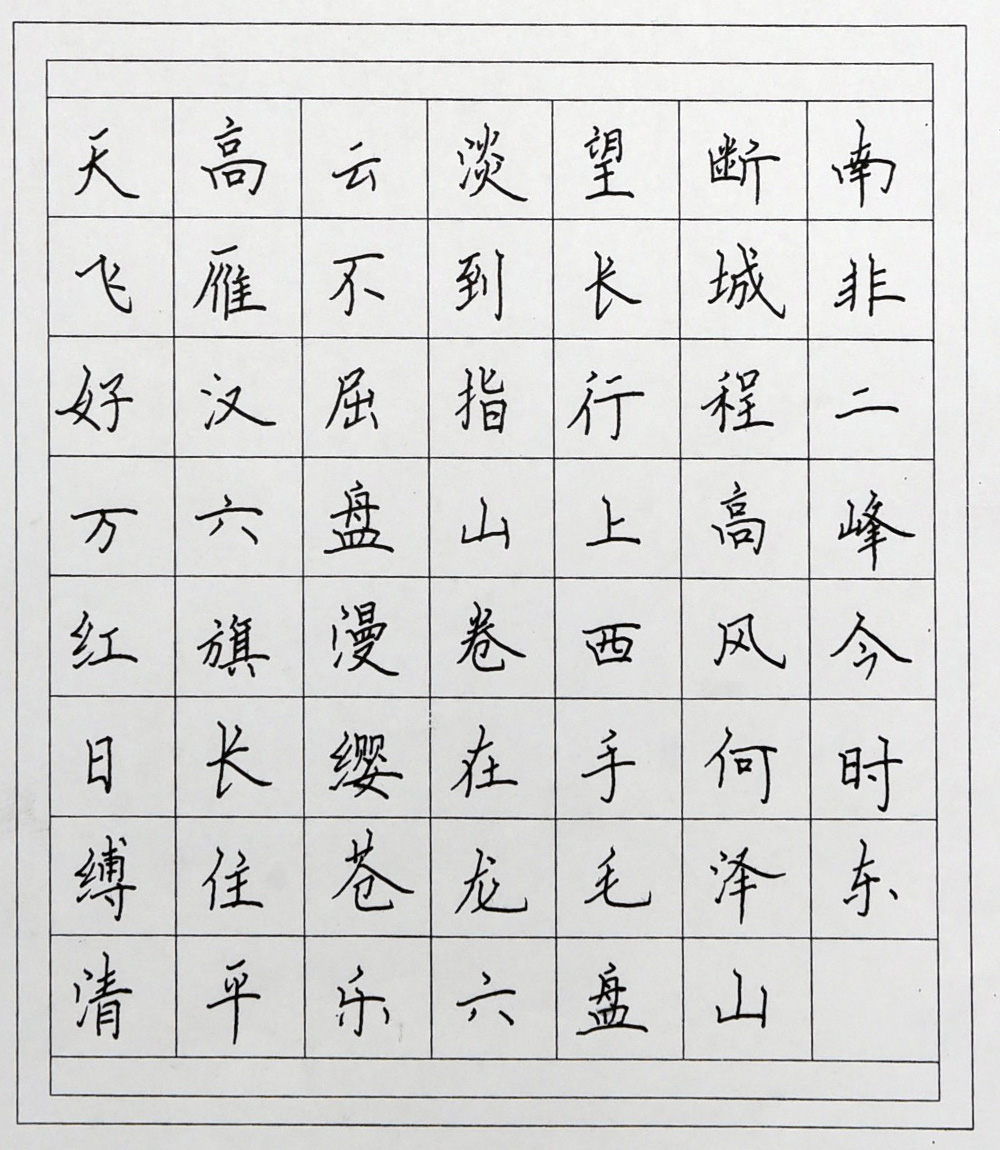 天高云淡望断南
飞雁不到长城非
好汉屈指行程二
万六盘山上高峰
红旗漫卷西风今
日长缨在手何时
缚住苍龙毛泽东
清平乐六盘山